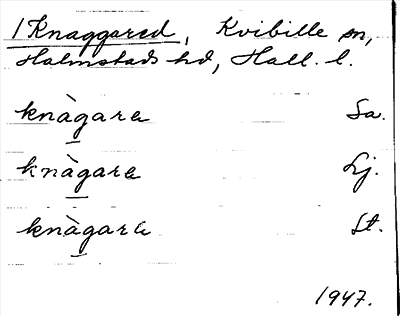 1 Knaggared, Kvibille sn,
Halmstads hd, Hall. l.
knàgarɐ Sa.
knàgarɐ Lj.
knàgarɐ St.
1947.